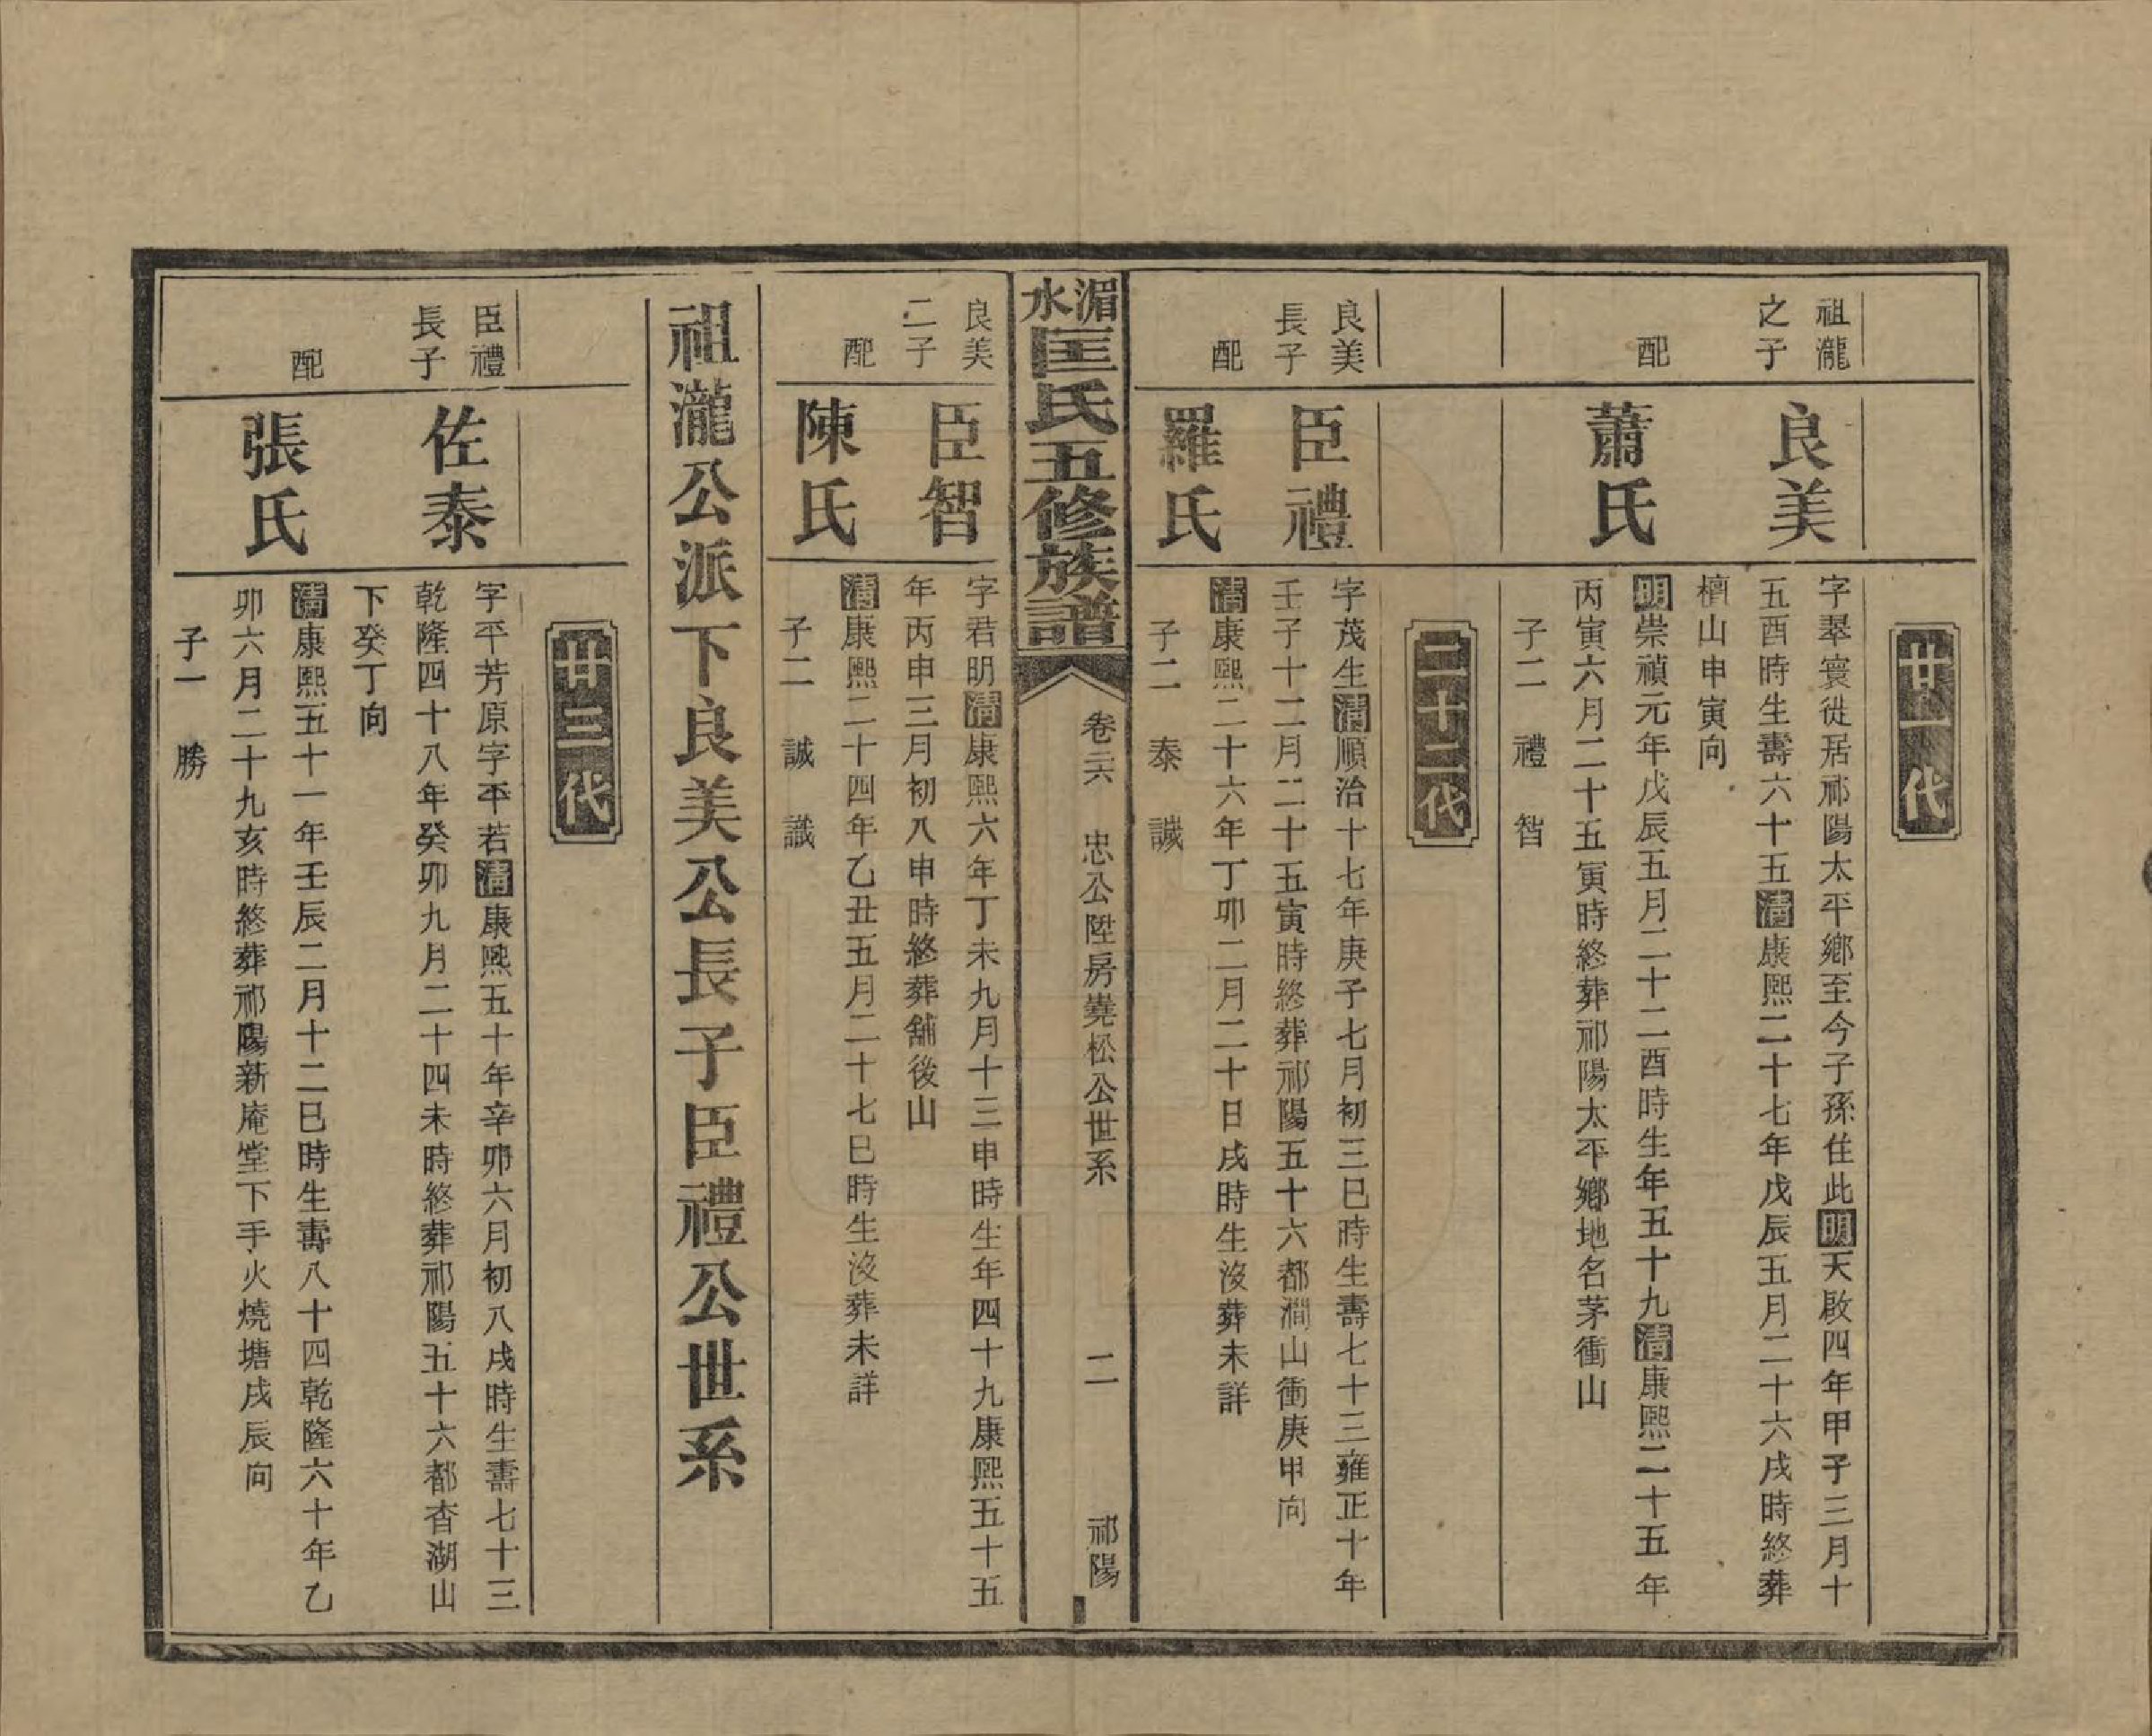 廿一代
祖瀧
之子
良美
字翠寰徙居祁陽太平鄉至今子孫住此明天啟四年甲子三月十
五酉時生壽六十五清康熙二十七年戊辰五月二十六戌時終葬
檟山申寅向
配
蕭氏
明崇禎元年戊辰五月二十二酉時生年五十九清康熙二十五年
丙寅六月二十五寅時終葬祁陽太平鄉地名茅衝山
子二 禮 智
二十二代
良美
長子
臣禮
字茂生清順治十七年庚子七月初三巳時生壽七十三雍正十年
壬子十二月二十五寅時終葬祁陽五十六都澗山衝庚甲向
配
羅氏
清康熙二十六年丁卯二月二十日戌時生沒葬未詳
子二 泰 誠
湄水匡氏五修族譜
卷三六 忠公陞房堯松公世系 二 祁陽
良美
二子
臣智
字君明清康熙六年丁未九月十三申時生年四十九康熙五十五
年丙申三月初八申時終葬舖後山
配
陳氏
清康熙二十四年乙丑五月二十七巳時生沒葬未詳
子二 誠 識
祖瀧公派下良美公長子臣禮公世系
廿三代
臣禮
長子
佐泰
字平芳原字平若清康熙五十年辛卯六月初八戌時生壽七十三
乾隆四十八年癸卯九月二十四未時終葬祁陽五十六都杳湖山
下癸丁向
配
張氏
清康熙五十一年壬辰二月十二巳時生壽八十四乾隆六十年乙
卯六月二十九亥時終葬祁陽新庵堂下手火燒塘戌辰向
子一 勝